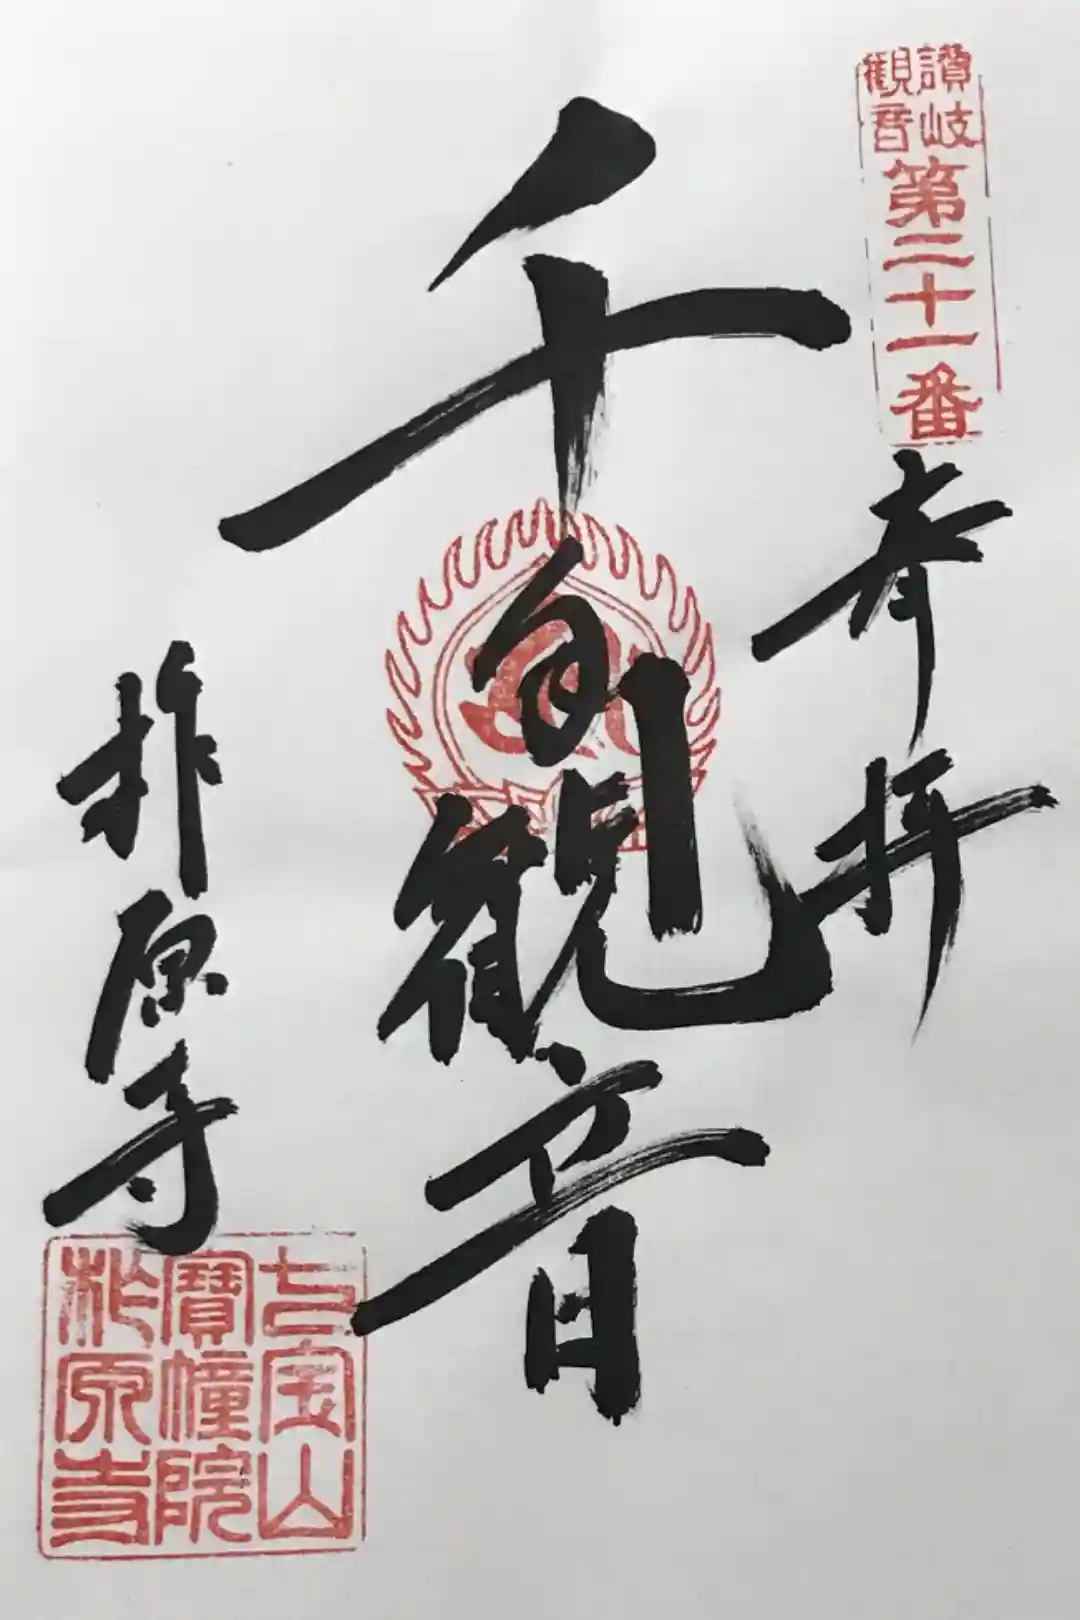 讚岐
観音
第二十一番
奉拝
千
観音
柞原寺
七宝山
寶幢院
柞原寺